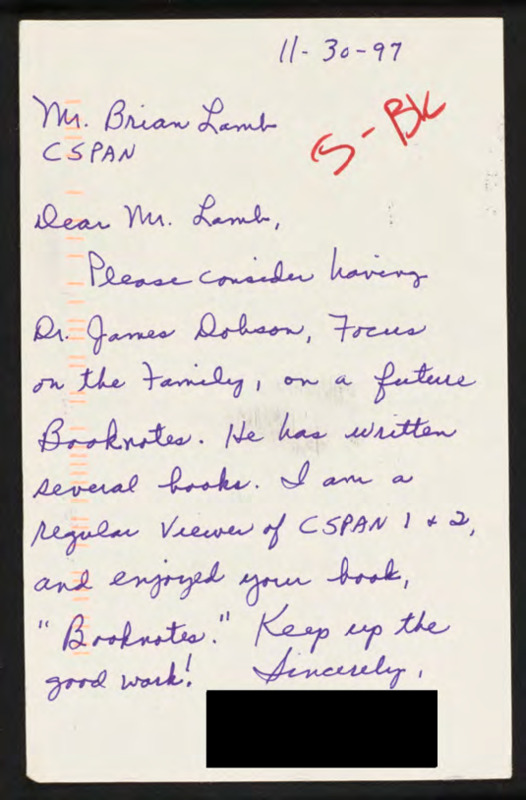 11-30-97
Mr. Brian Lamb
CSPAN
S-BK
Dear Mr. Lamb,
Please consider having
Dr. James Dobson, Focus
on the Family, on a future
Booknotes. He has written
several books. I am a
regular viewer of CSPAN 1 + 2,
and enjoyed your book,
"Booknotes." Keep up the
good work! Sincerely,